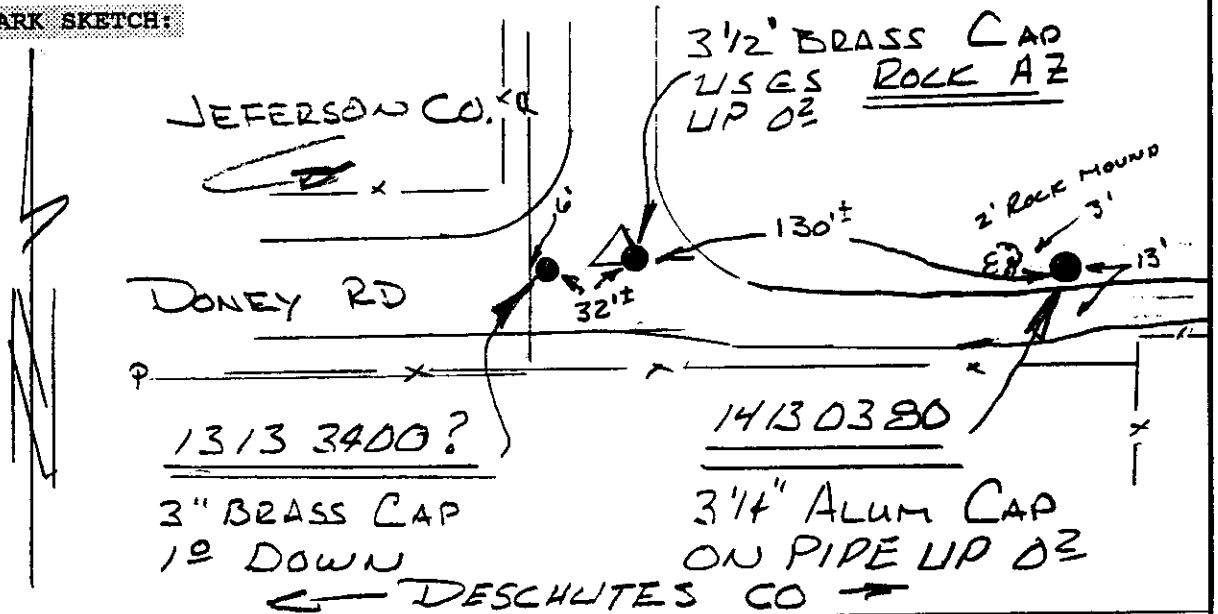 ARK SKETCH:
3 1/2" BRASS CAP
USGS ROCK AZ
UP 0²
JEFERSON CO.
2' ROCK MOUND
3'
6'
130'±
13'
32'±
DONEY RD
1313 3400?
3" BRASS CAP
1⁰ DOWN
14130380
3 1/4" ALUM CAP
ON PIPE UP 0²
DESCHUTES CO